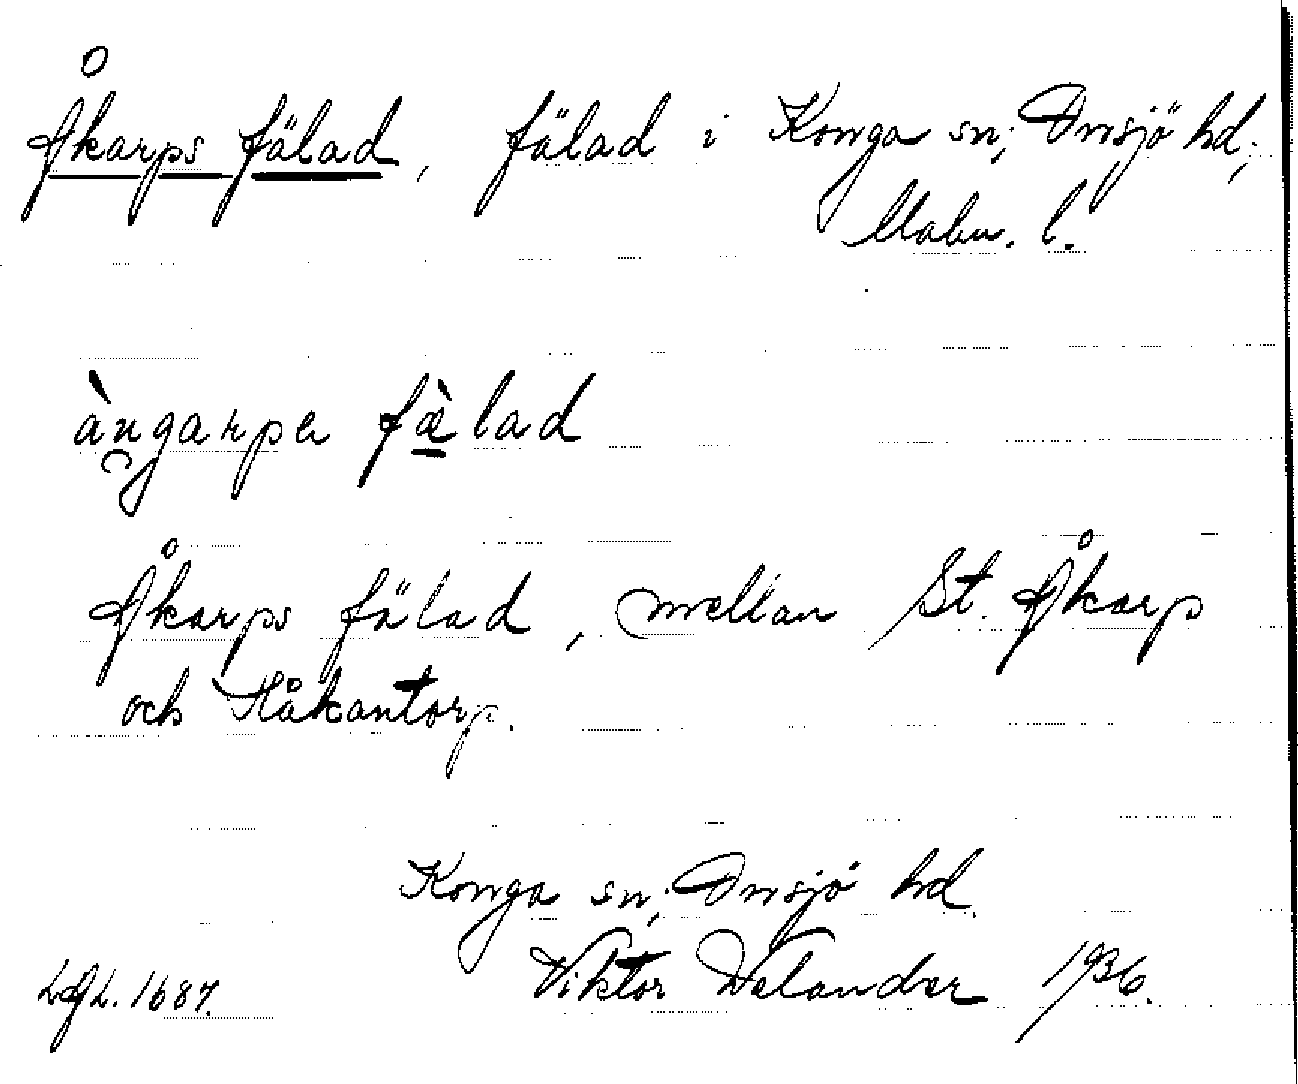 Åkarps fälad, fälad i Konga sn; Onsjö hd;
Malm. l.
àu̯garpa fæ̀lad
Åkarps fälad, mellan St. Åkarp
och Håkantorp.
Konga sn; Onsjö hd.
LAL. 1687. Viktor Welander 1936.